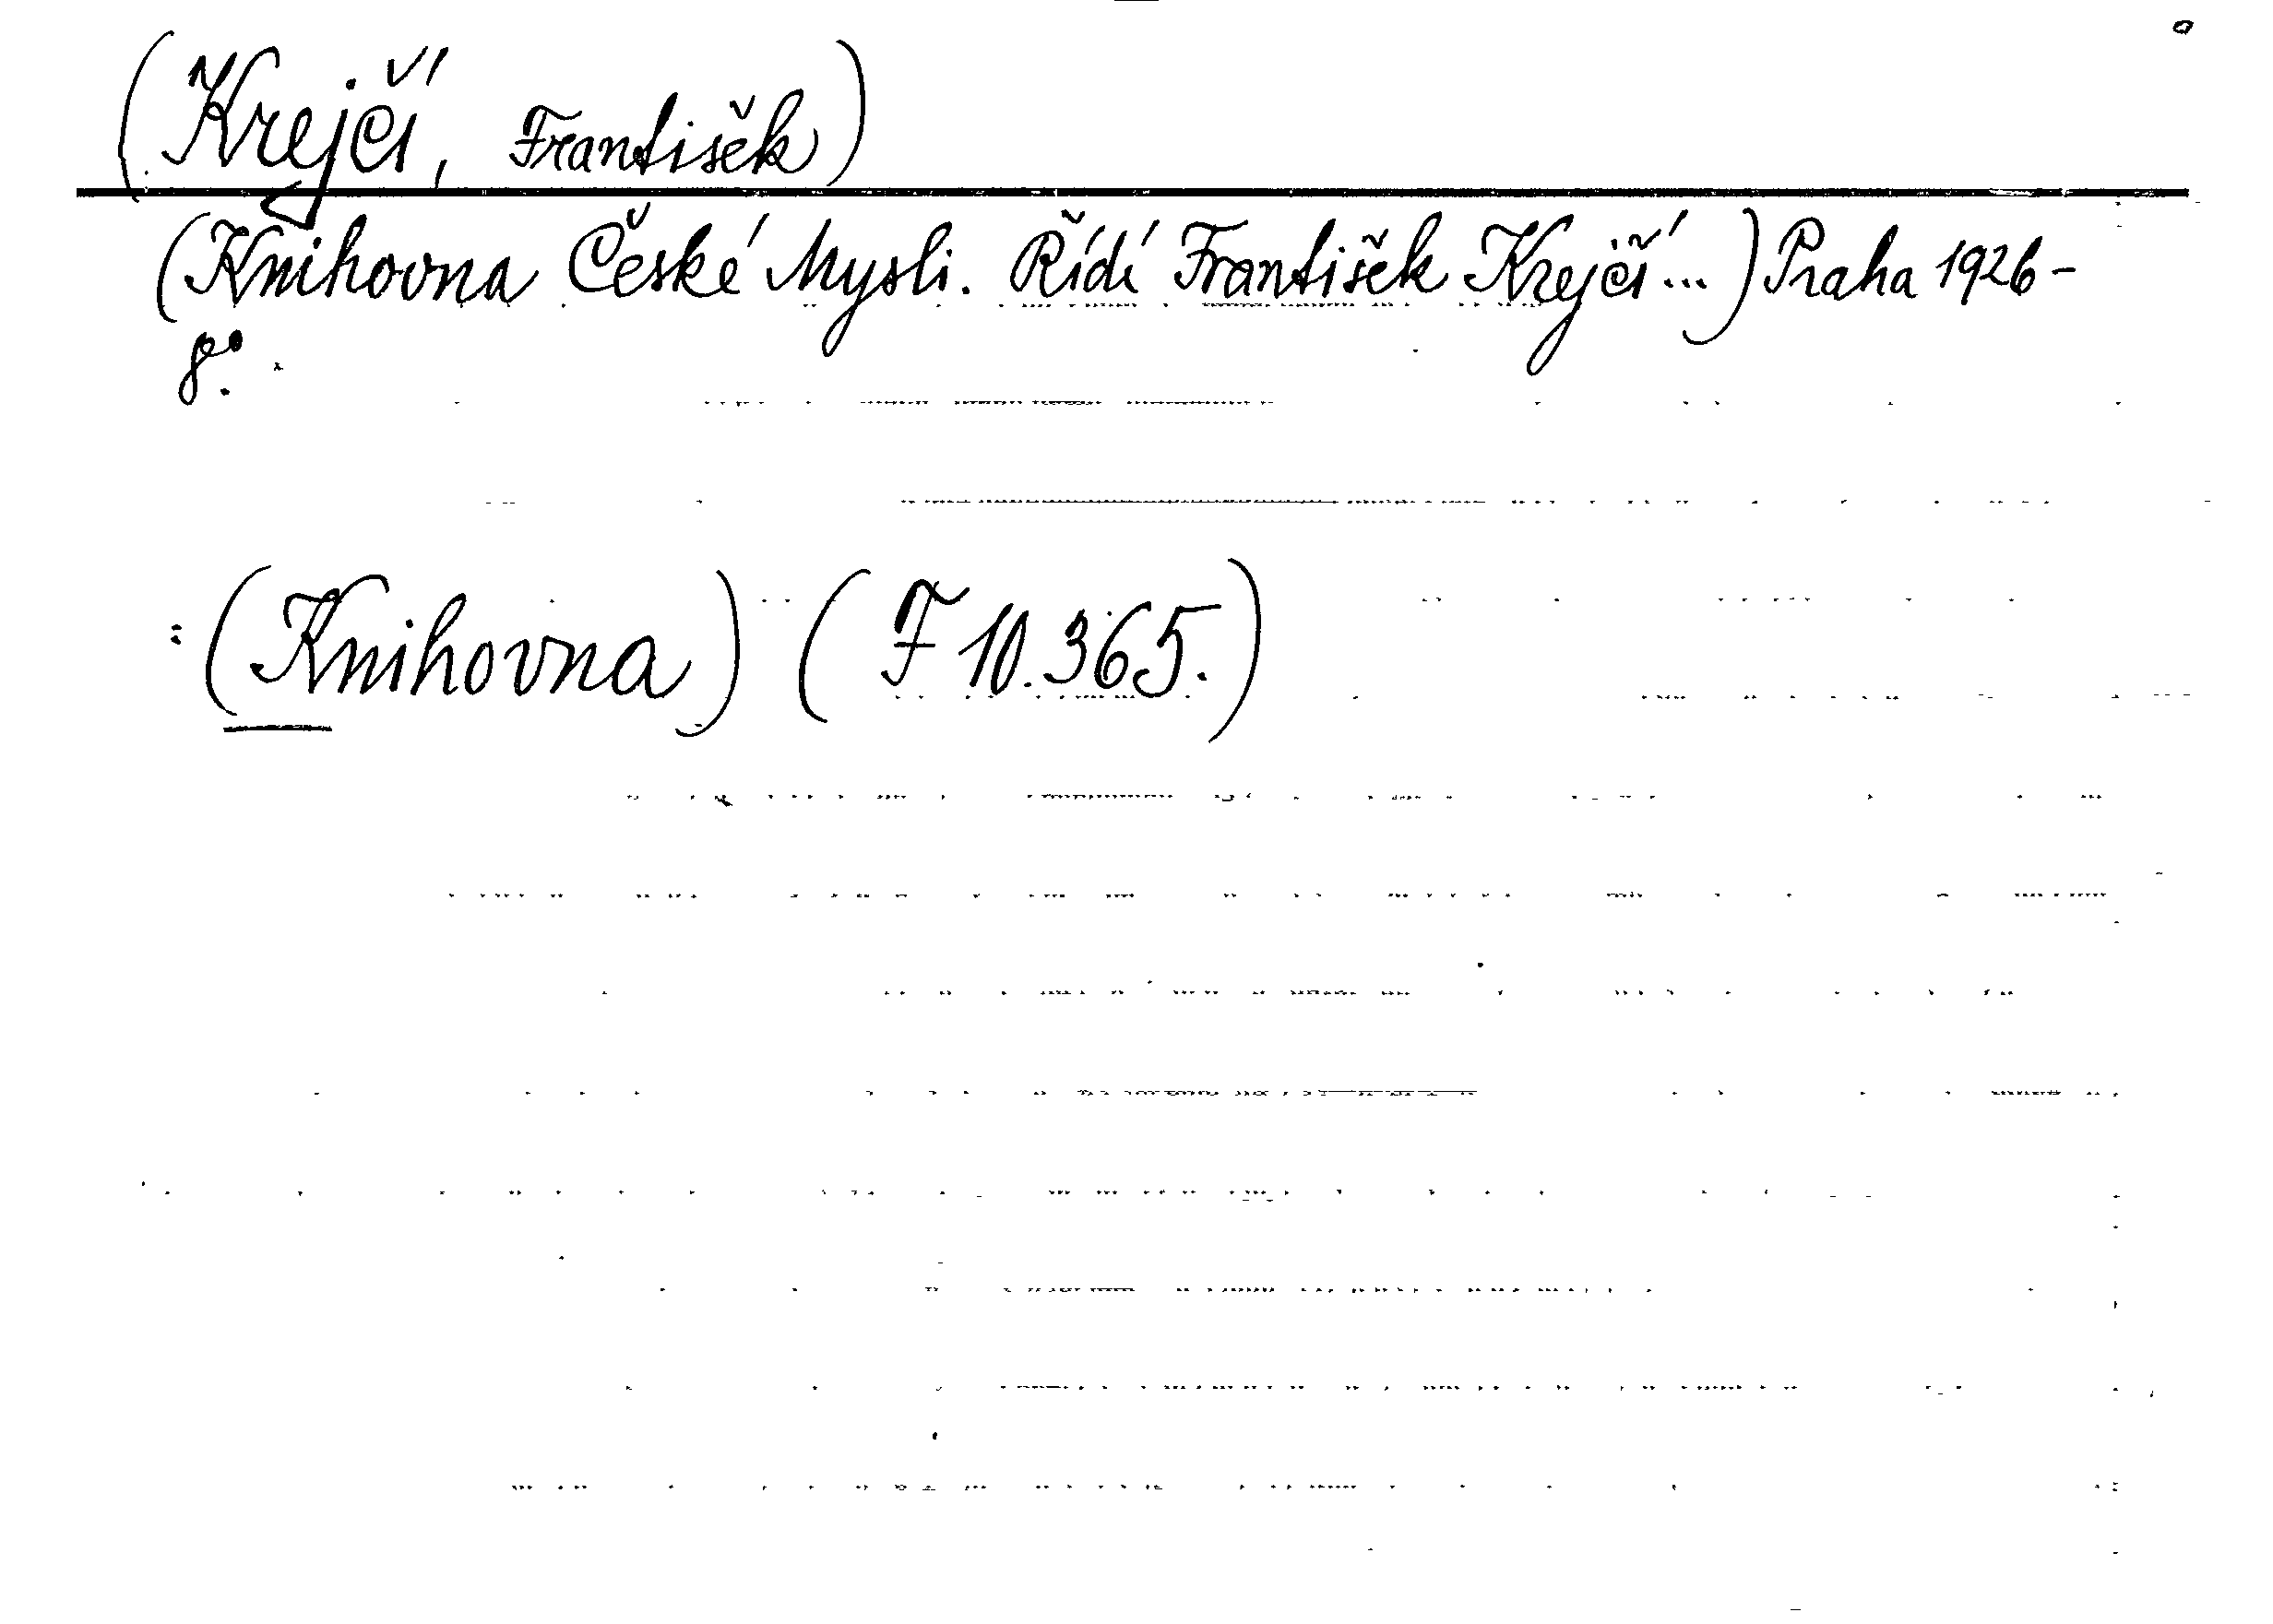 (Krejčí, František)
(Knihovna České Mysli. Řídí František Krejčí...) Praha 1926-
8°.
:(Knihovna) (F 10.365.)